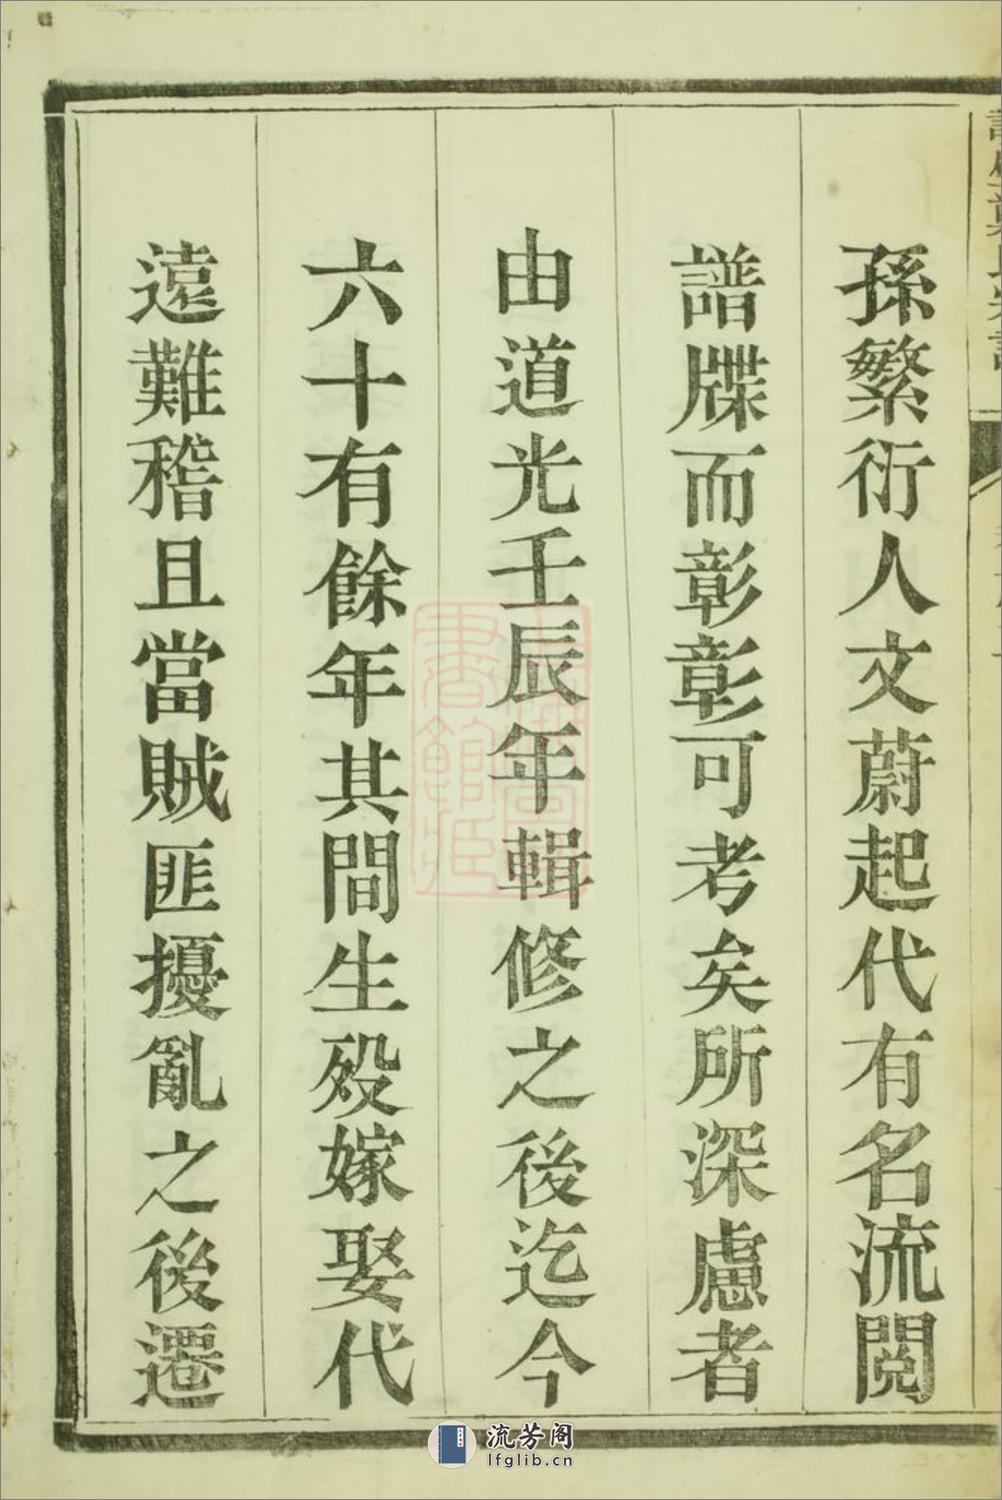 孫繁衍人文蔚起代有名流閱
譜牒而彰彰可考矣所深慮者
由道光壬辰年輯修之後迄今
六十有餘年其間生歿嫁娶代
遠難稽且當賊匪擾亂之後遷
流芳阁
lfglib.cn